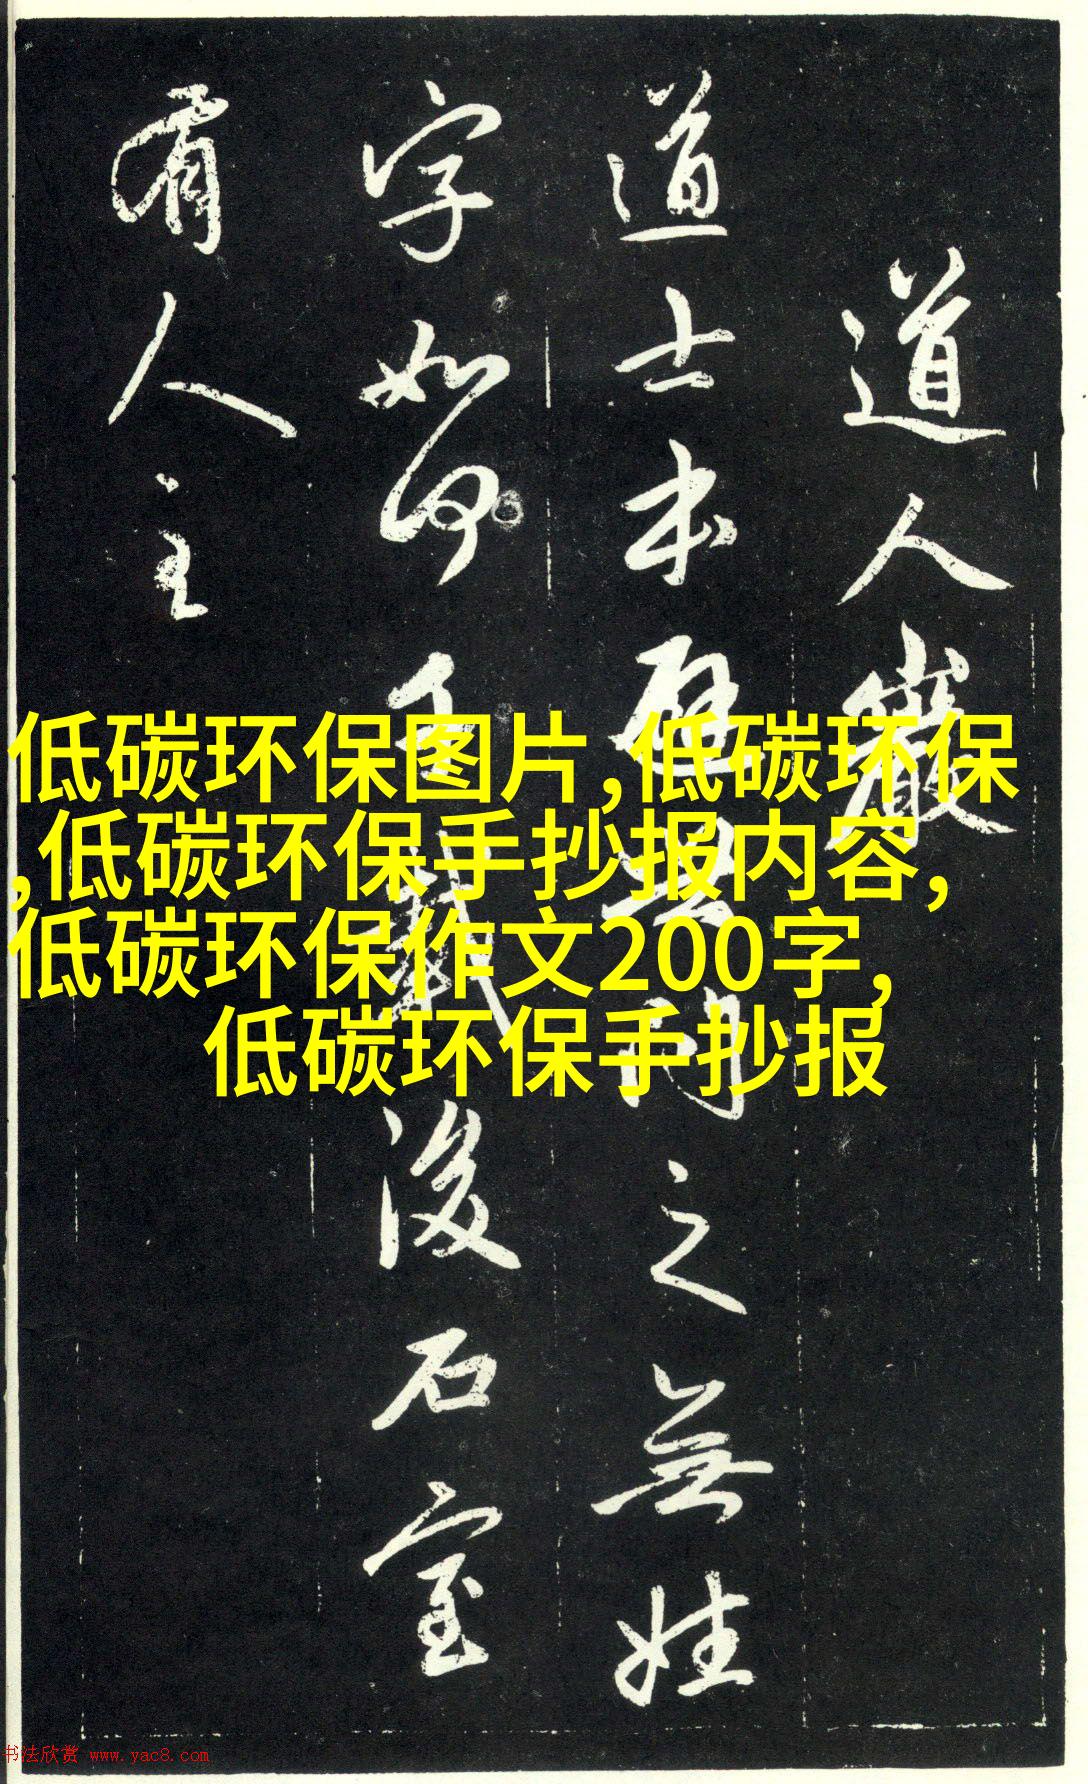 道人巖
道士本無之無姓
字如何千載後石室
有人主
低碳环保图片,低碳环保
,低碳环保手抄报内容,
低碳环保作文200字,
低碳环保手抄报
书法欣赏 www.yac8.com